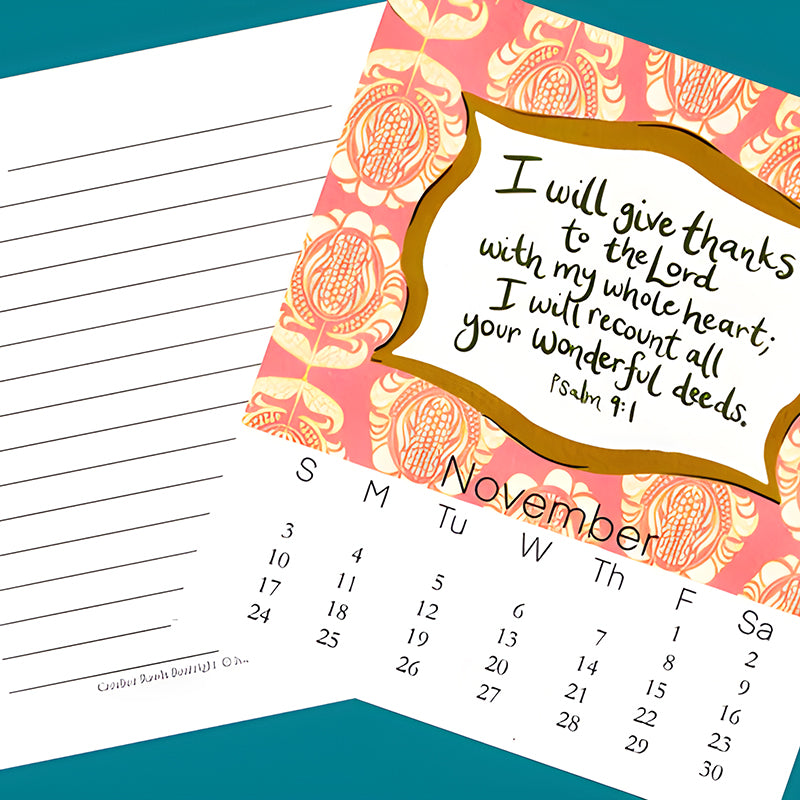 I will give thanks
to the Lord
with my whole heart;
I will recount all
your wonderful deeds.
Psalm 9:1
November
S M Tu W Th F Sa
1 2
3 4 5 6 7 8 9
10 11 12 13 14 15 16
17 18 19 20 21 22 23
24 25 26 27 28 29 30